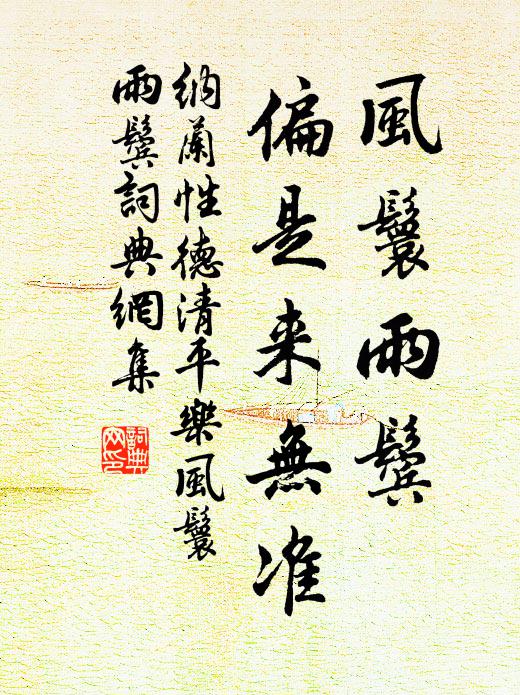 風鬟雨鬢
偏是来無准
納蘭性德清平樂風鬟
雨鬢詞典網集
詞典
网印